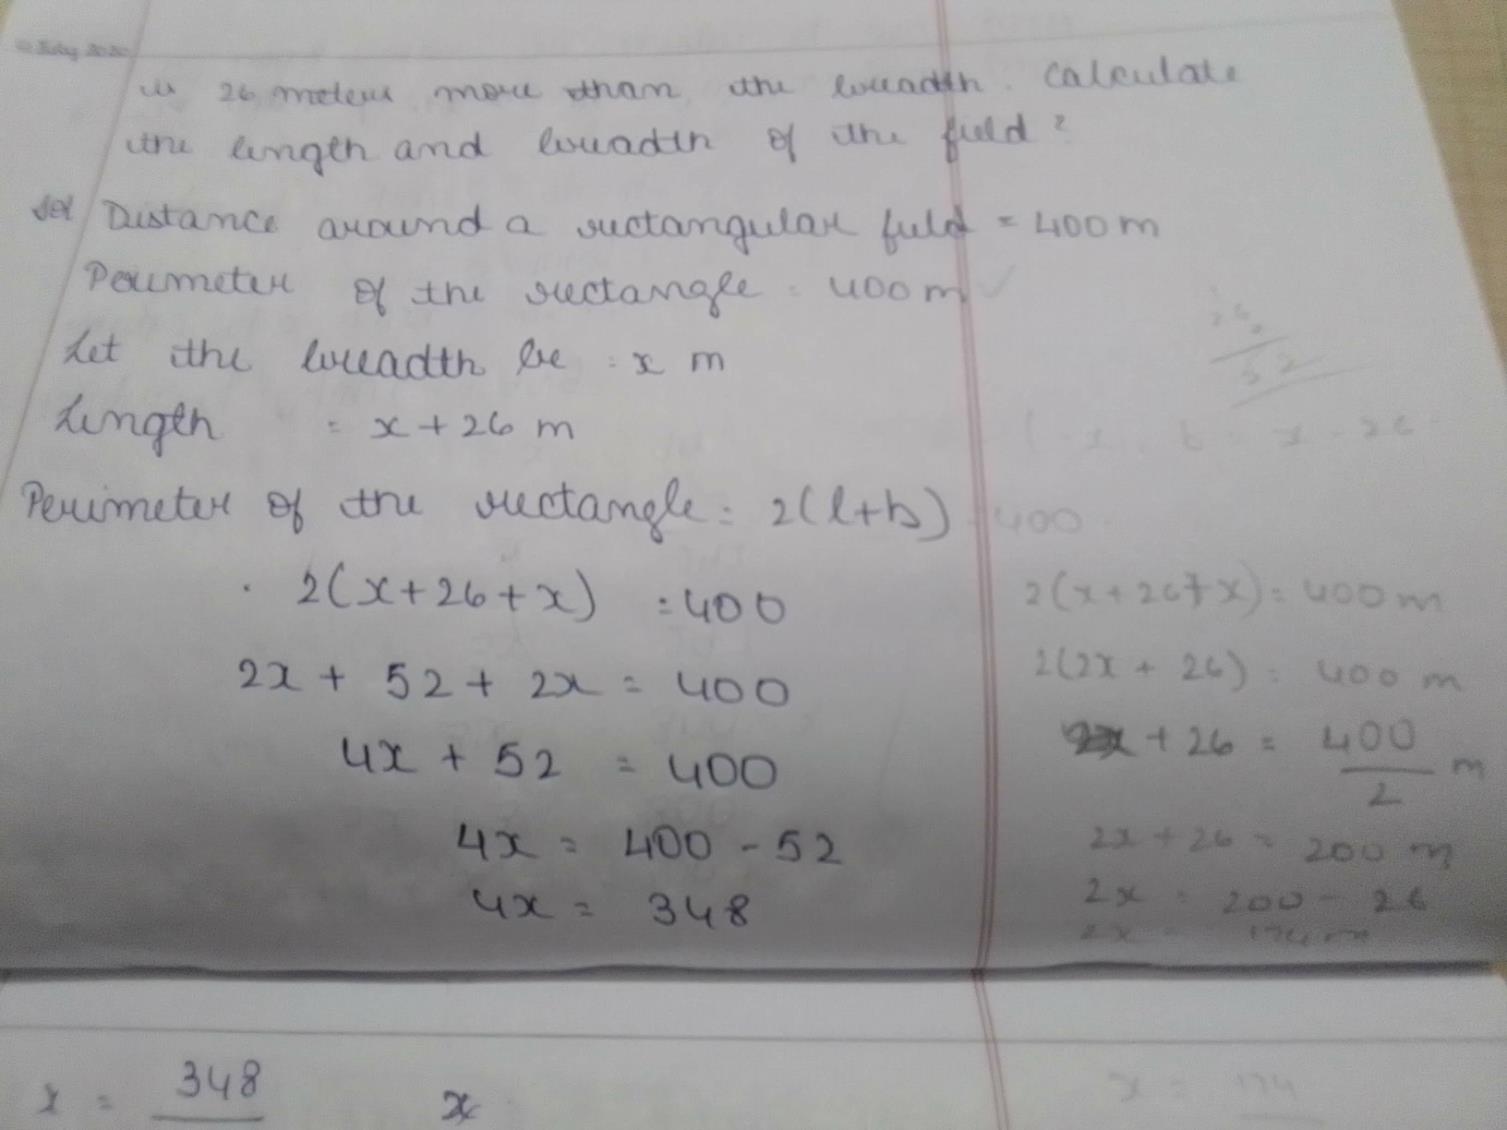 is 26 meters more than the breadth. Calculate
the length and breadth of the field?
Sol Distance around a rectangular field = 400 m
Perimeter of the rectangle = 400 m
Let the breadth be = x m
Length = x + 26 m
Perimeter of the rectangle = 2(l+b) = 400
2(x+26+x) = 400
2x + 52 + 2x = 400
4x + 52 = 400
4x = 400 - 52
4x = 348
x = 348
x
26
52
x - 26
2(x+26+x) = 400 m
2(2x + 26) = 400 m
2x + 26 = 400
2 m
2x + 26 = 200 m
2x = 200 - 26
2x = 174 m
x = 174